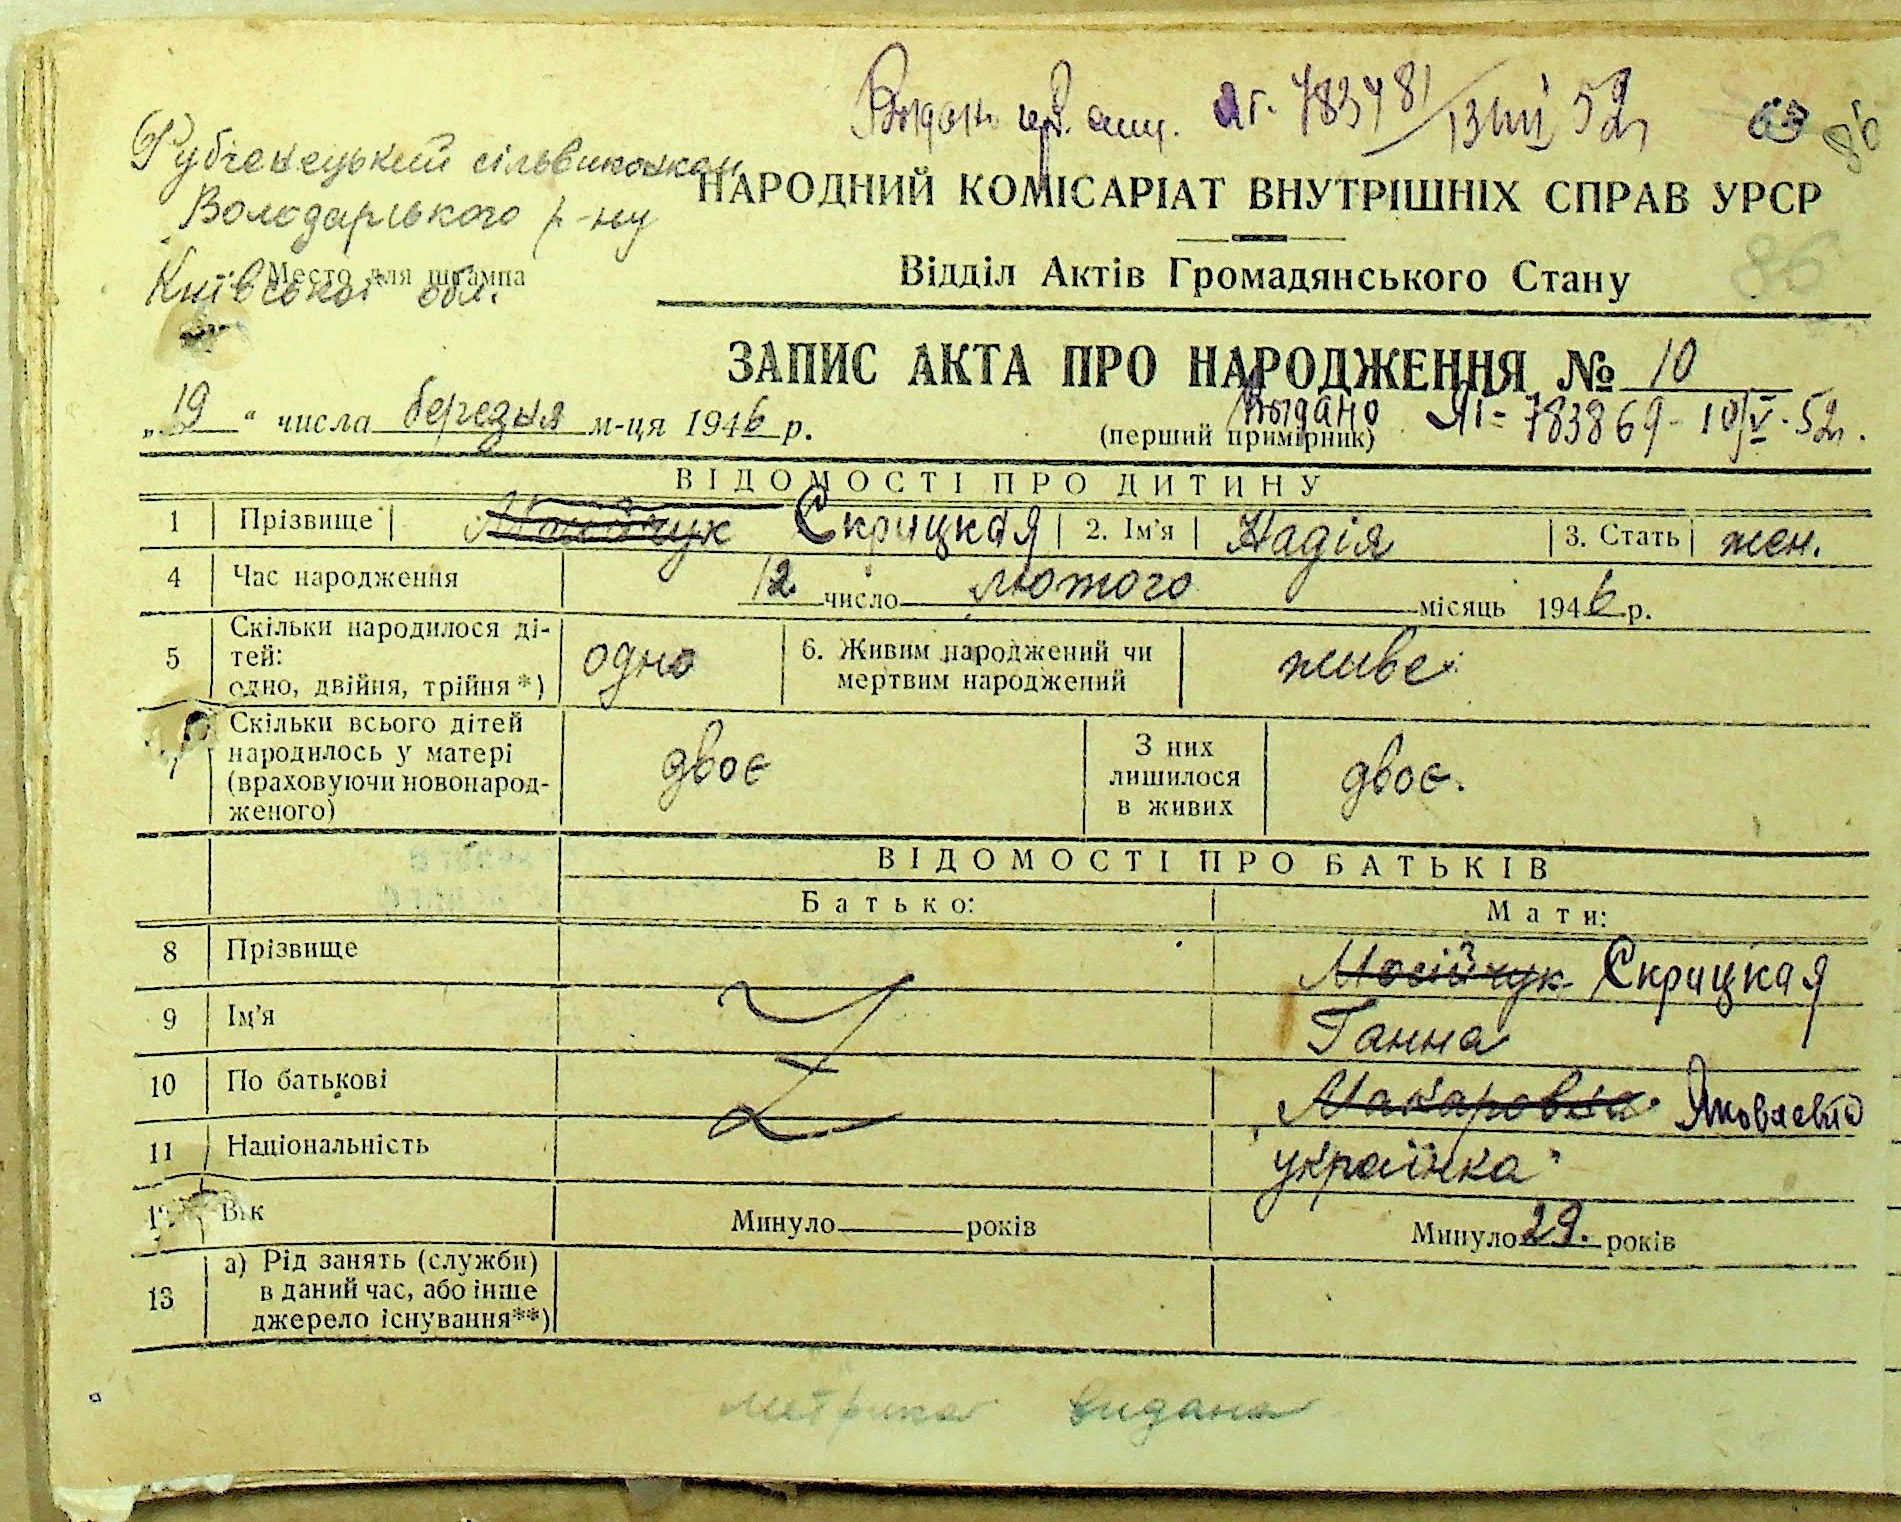 Выдано ЯГ. 783781/13/VII 52г 63 86
Рубченецький сільвиконком
Володарського р-ну
Київської обл.
Место для штампа
НАРОДНИЙ КОМІСАРІАТ ВНУТРІШНІХ СПРАВ УРСР
Відділ Актів Громадянського Стану 86
ЗАПИС АКТА ПРО НАРОДЖЕННЯ № 10
„19“ числа березня м-ця 1946 р. (перший примірник) Выдано ЯГ= 783869- 10/V- 52г.
ВІДОМОСТІ ПРО ДИТИНУ
1 Прізвище Мосійчук Скрицкая 2. Ім'я Надія 3. Стать жен.
4 Час народження 12 число лютого місяць 1946 р.
5 Скільки народилося ді-
тей:
одно, двійня, трійня*) одно 6. Живим народжений чи
мертвим народжений живе
7 Скільки всього дітей
народилось у матері
(враховуючи новонарод-
женого) двоє З них
лишилося
в живих двоє.
ВІДОМОСТІ ПРО БАТЬКІВ
Батько: Мати:
8 Прізвище Мосійчук Скрицкая
9 Ім'я Ганна
10 По батькові Макаровна Яковлевна
11 Національність українка
12 Вік Минуло років Минуло 29. років
13 а) Рід занять (служби)
в даний час, або інше
джерело існування**)
метрика видана